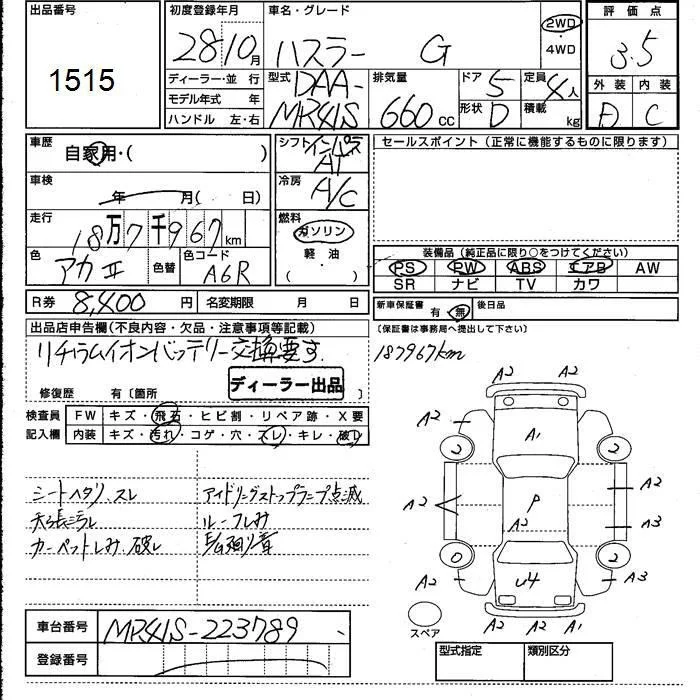 出品番号
1515
初度登録年月
28 10月
車名・グレード
ハスラー G
2WD
・
4WD
評価点
3.5
外装 内装
D C
ディーラー・並行
モデル年式 年
ハンドル 左・右
型式
DAA-
MR41S
排気量
660 cc
ドア 5
形状 D
定員 4人
積載 kg
車歴
自家用・( )
車検
年 月( 日)
走行
18万7千967km
色
アカⅡ
色替
色コード
A6R
シフト インパネ
AT
冷房
A/C
燃料
ガソリン
・
軽油
( )
セールスポイント(正常に機能するものに限ります)
装備品(純正品に限り○をつけてください)
PS PW ABS エアB AW
SR ナビ TV カワ
R券 8,400 円 名変期限 月 日
新車保証書 有・無 後日品
〔保証書は事務局へ提出して下さい〕
出品店申告欄(不良内容・欠品・注意事項等記載)
リチウムイオンバッテリー交換要す
修復歴 有〔箇所 〕
ディーラー出品
187967km
検査員
記入欄
FW キズ・飛石・ヒビ割・リペア跡・X要
内装 キズ・汚れ・コゲ・穴・スレ・キレ・破れ
シートヘタリ.スレ
天張ミラレ
カーペットしみ.破レ
アイドリングストップランプ点滅
ルーフしみ
A2 A2
A2 A1 A2
2 2
A2 P A2
A2 A3
0 2
A2 U4 A3
A2 A2 A1
スペア
車台番号 MR41S-223789
登録番号
型式指定 類別区分